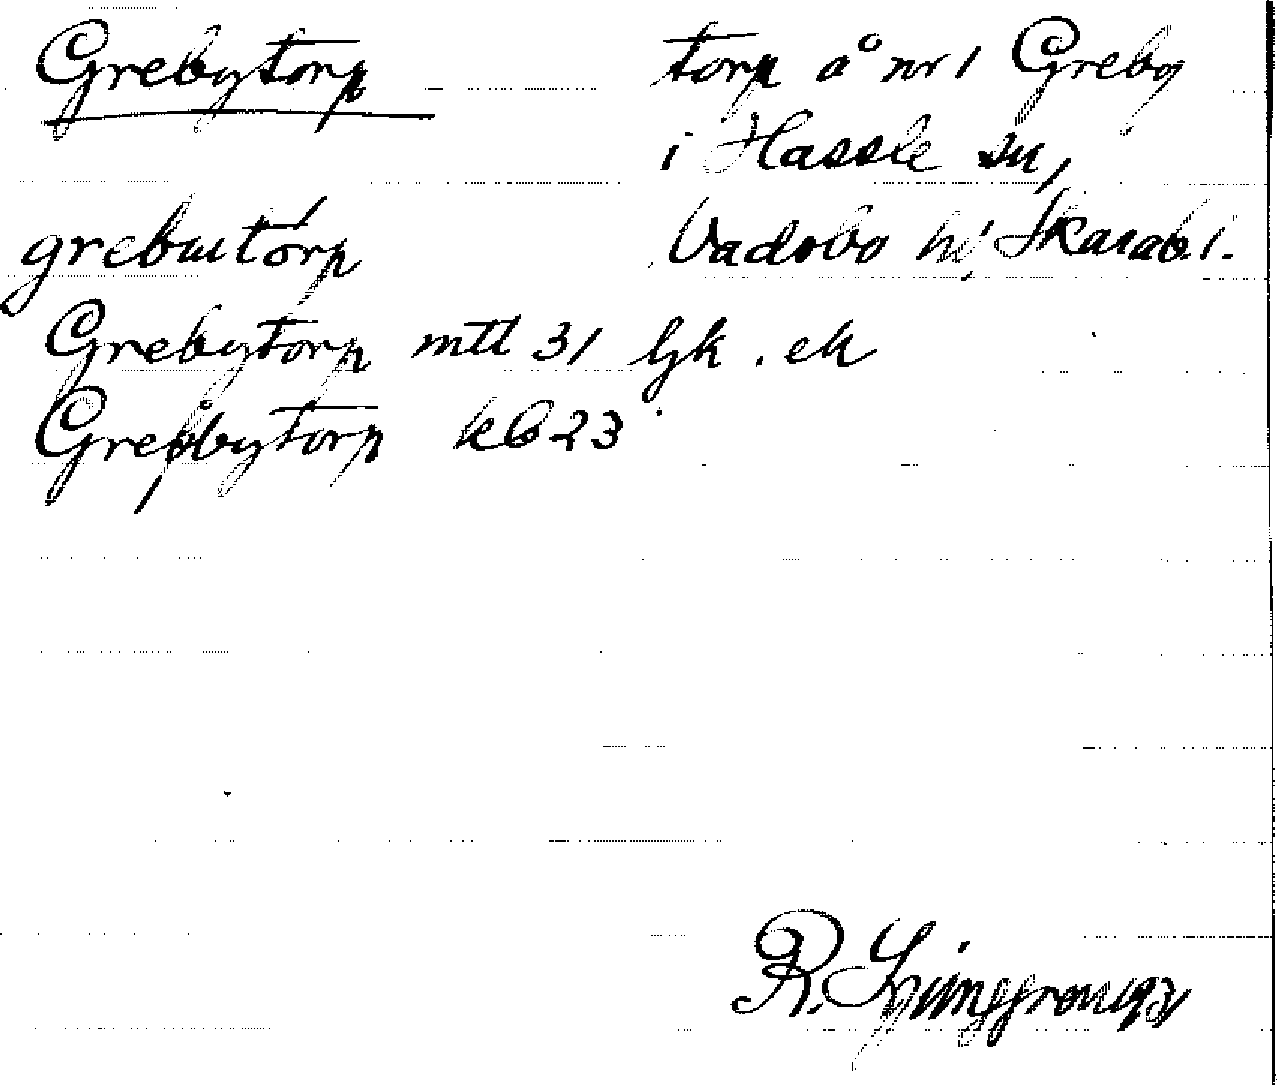 Grebytorp
torp å nr 1 Greby
i Hassle sn,
Vadsbo hd, Skarab. l.
grebutorp
Grebytorp mtl 31 Gk. ek
Grebytorp kb 23
R. Ljunggren